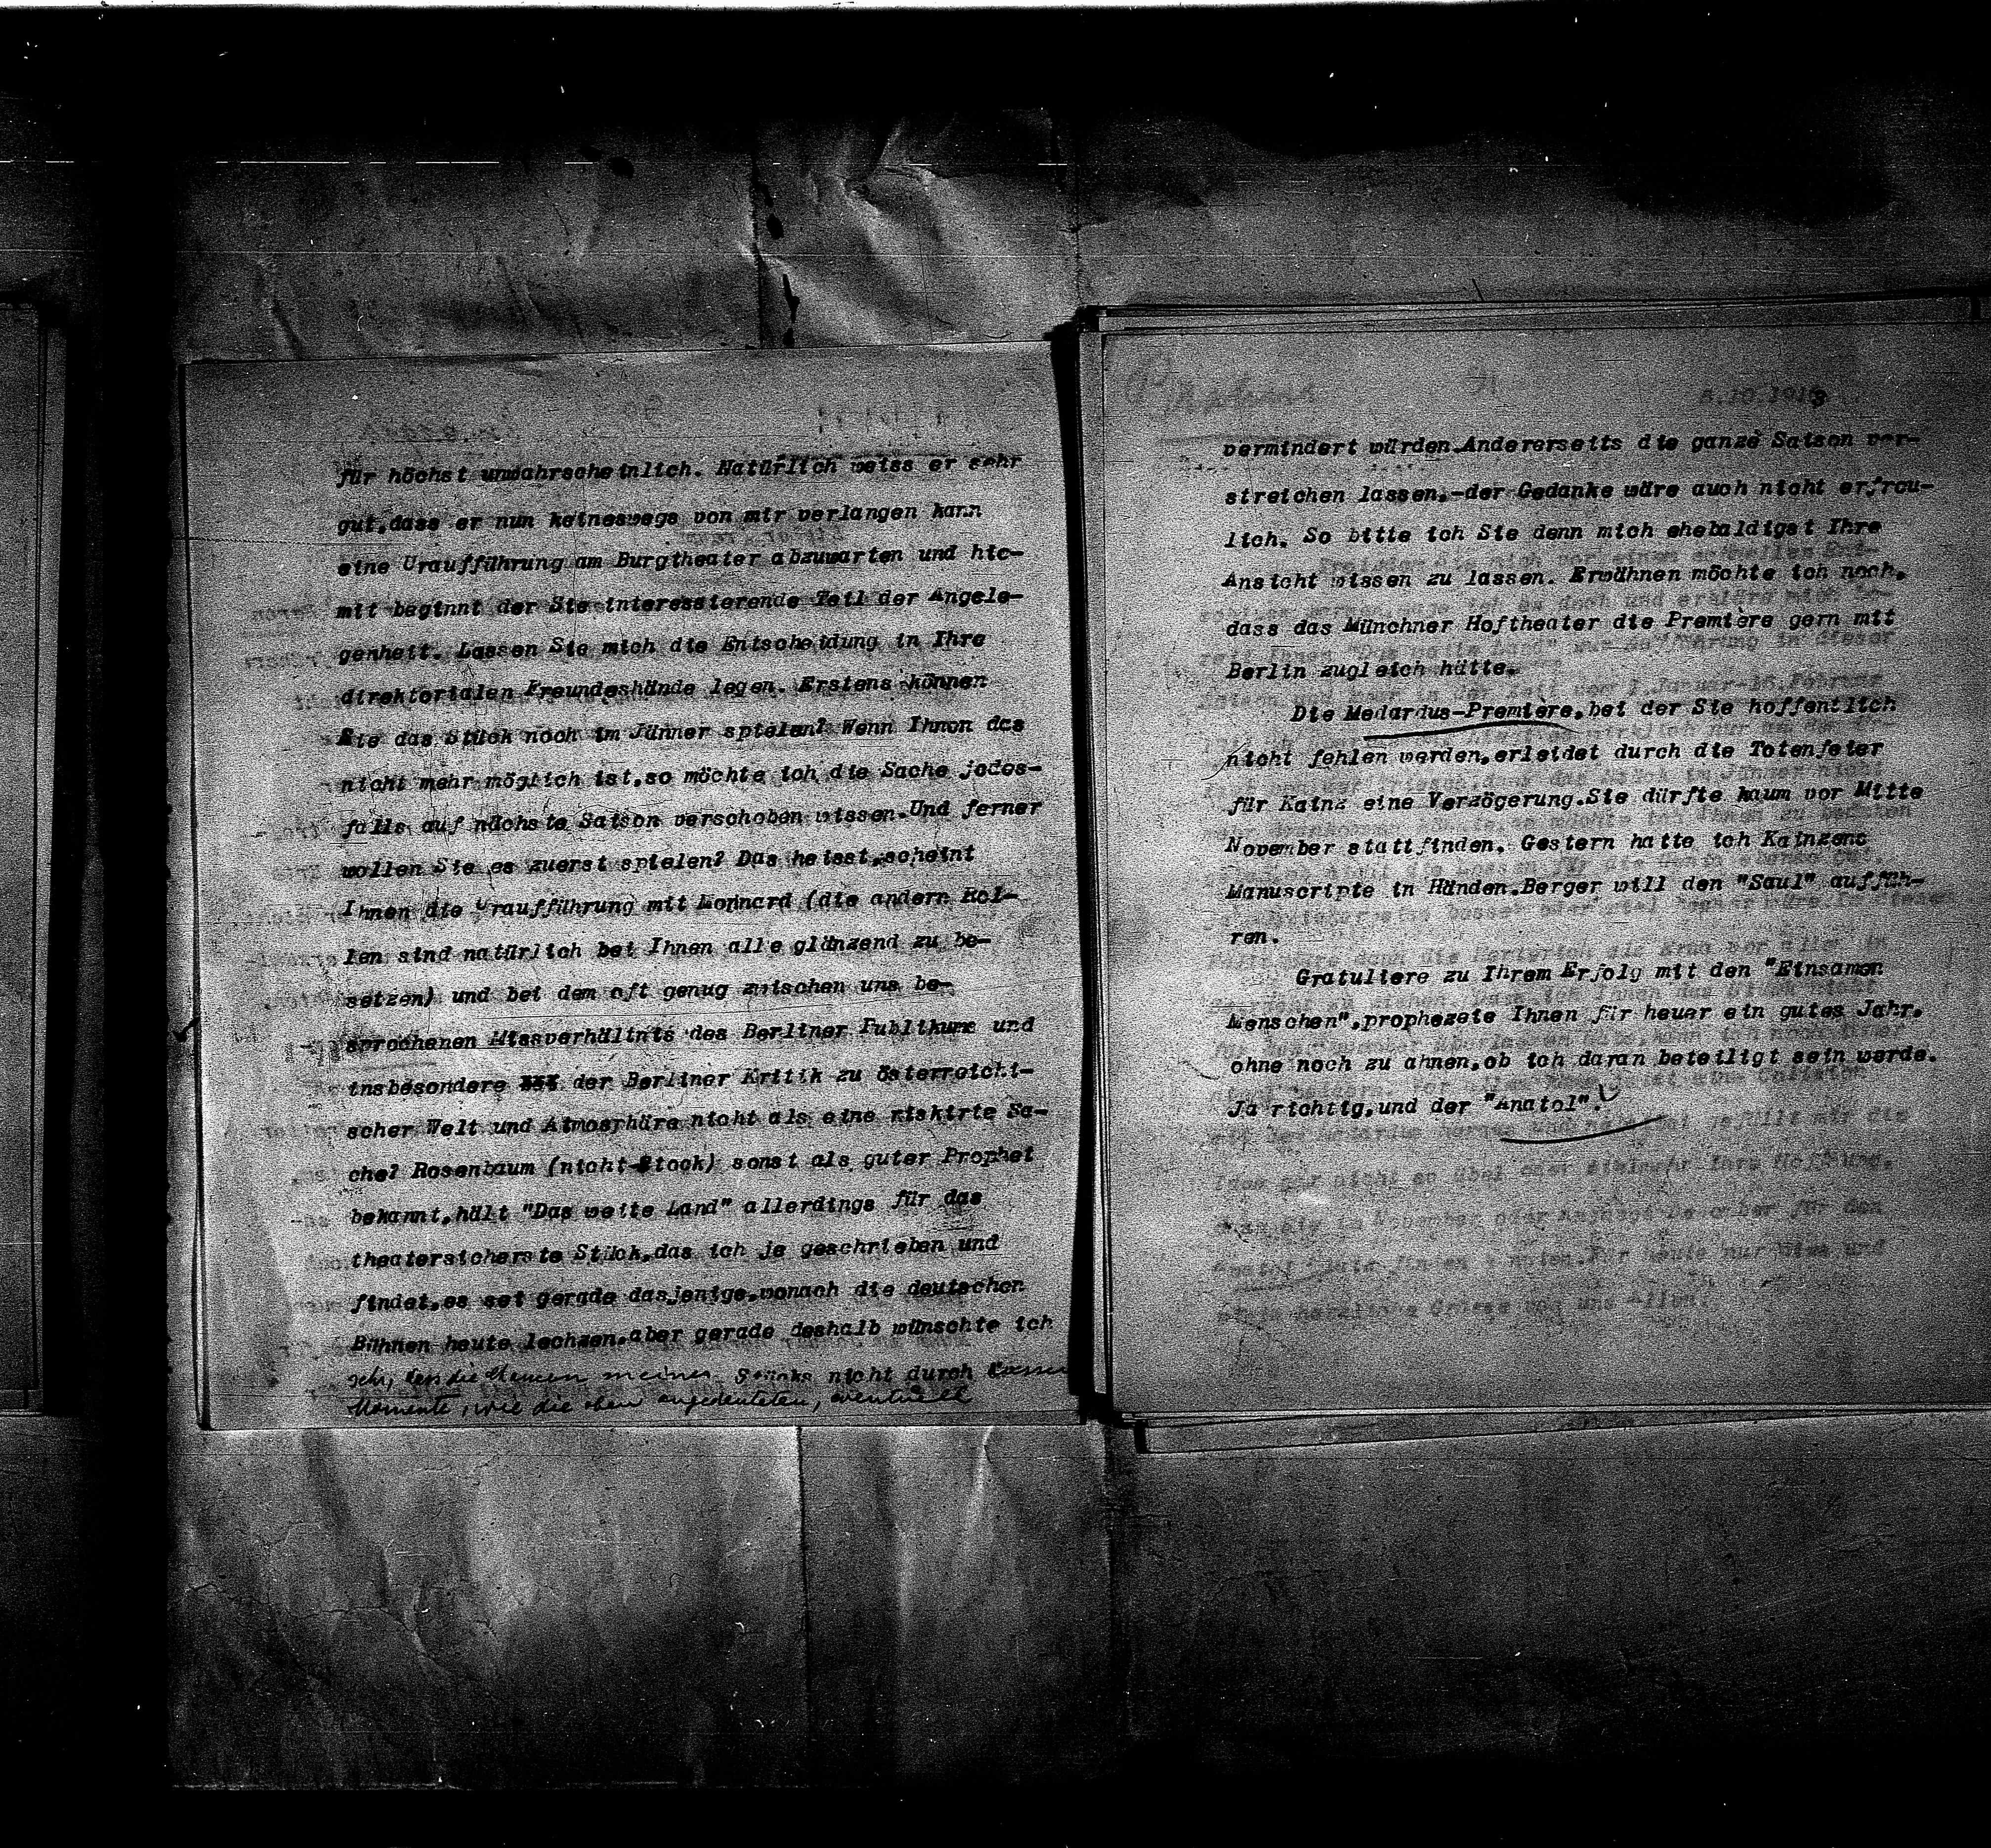 für höchst unwahrscheinlich. Natürlich weiss er sehr
gut,dass er nun keineswegs von mir verlangen kann
eine Uraufführung am Burgtheater abzuwarten und hie-
mit beginnt der Sie interessierende Teil der Angele-
genheit. Lassen Sie mich die Entscheidung in Ihre
direktorialen Freundeshände legen. Erstens können
Sie das Stück noch im Jänner spielen? Wenn Ihnen das
nicht mehr möglich ist,so möchte ich die Sache jedes-
falls auf nächste Saison verschoben wissen.Und ferner
wollen Sie es zuerst spielen? Das heisst,scheint
Ihnen die Uraufführung mit Monnard (die andern Rol-
len sind natürlich bei Ihnen alle glänzend zu be-
setzen) und bei dem oft genug zwischen uns be-
sprochenen Missverhältnis des Berliner Publikums und
insbesondere der Berliner Kritik zu österreichi-
scher Welt und Atmosphäre nicht als eine riskirte Sa-
che? Rosenbaum (nicht Stock) sonst als guter Prophet
bekannt,hält "Das weite Land" allerdings für das
theatersicherste Stück,das ich je geschrieben und
findet,es sei gerade dasjenige,wonach die deutschen
Bühnen heute lechzen.aber gerade deshalb wünschte ich
sehr, dass die Chancen meines Stücks nicht durch
Momente, wie die oben angedeuteten, eventuell
8.10.191
vermindert würden.Andererseits die ganze Saison ver-
streichen lassen,-der Gedanke wäre auch nicht erfreu-
lich. So bitte ich Sie denn mich ehebaldigst Ihre
Ansicht wissen zu lassen. Erwähnen möchte ich noch,
dass das Münchner Hoftheater die Première gern mit
Berlin zugleich hätte.
Die Medardus-Premiere,bei der Sie hoffentlich
nicht fehlen werden,erleidet durch die Totenfeier
für Kainz eine Verzögerung.Sie dürfte kaum vor Mitte
November stattfinden. Gestern hatte ich Kainzens
Manuscripte in Händen.Berger will den "Saul" auffüh-
ren.
Gratuliere zu Ihrem Erfolg mit den "Einsamen
Menschen",prophezeie Ihnen für heuer ein gutes Jahr,
ohne noch zu ahnen,ob ich daran beteiligt sein werde.
Ja richtig,und der "Anatol".